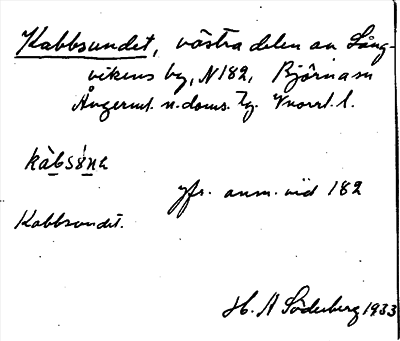 Kabbsundet, västra delen av Lång-
vikens by, N 182, Björna sn
Ångerml. n. doms. tg. Vnorrl. l.
kàbsúna
jfr. anm. vid 182
Kabbsundet.
H. A Söderberg 1933